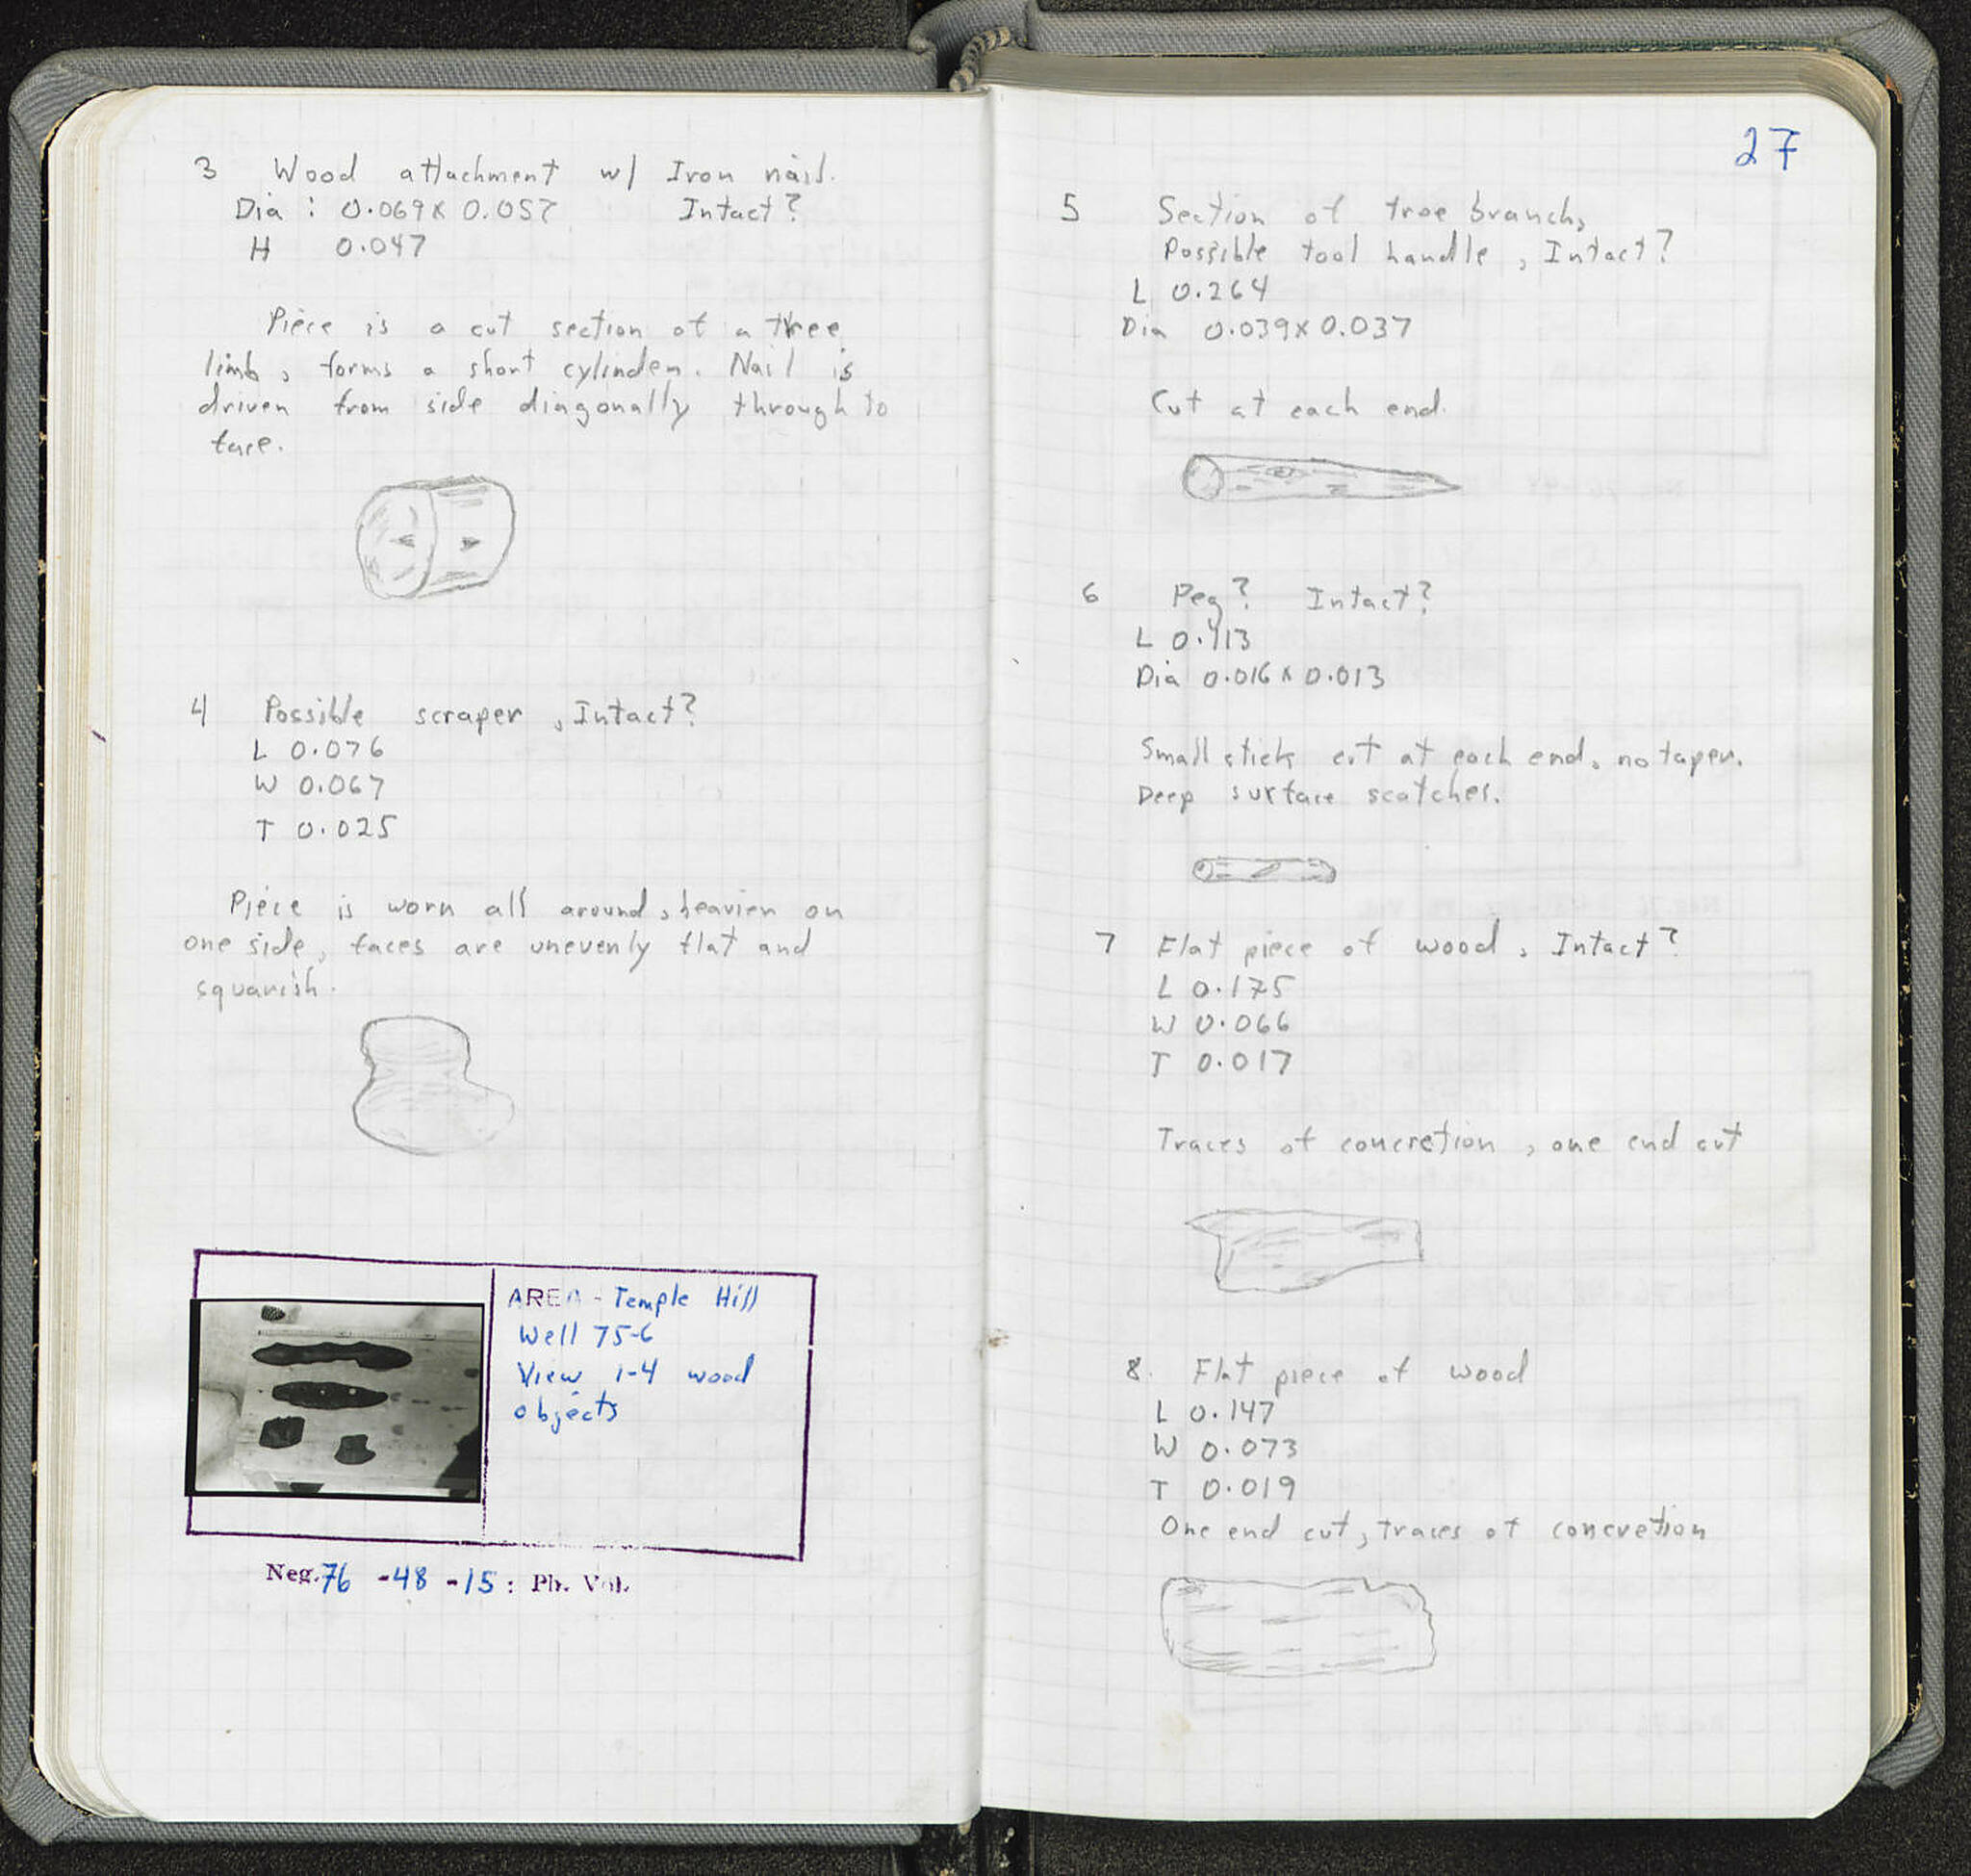 3 Wood attachment w/ Iron nail.
Dia : 0.069 x 0.057 Intact?
H 0.047
Piece is a cut section of a tree
limb, forms a short cylinder. Nail is
driven from side diagonally through to
face.
4 Possible scraper, Intact?
L 0.076
W 0.067
T 0.025
Piece is worn all around, heavier on
one side, faces are unevenly flat and
squarish.
AREA - Temple Hill
Well 75-6
View 1-4 wood
objects
Neg. 76 -48 -15 : Ph. Vol.
27
5 Section of tree branch,
Possible tool handle, Intact?
L 0.264
Dia 0.039 x 0.037
Cut at each end.
6 Peg? Intact?
L 0.113
Dia 0.016 x 0.013
Small stick cut at each end, no taper.
Deep surface scatches.
7 Flat piece of wood, Intact?
L 0.175
W 0.066
T 0.017
Traces of concretion, one end cut
8. Flat piece of wood
L 0.147
W 0.073
T 0.019
One end cut, traces of concretion